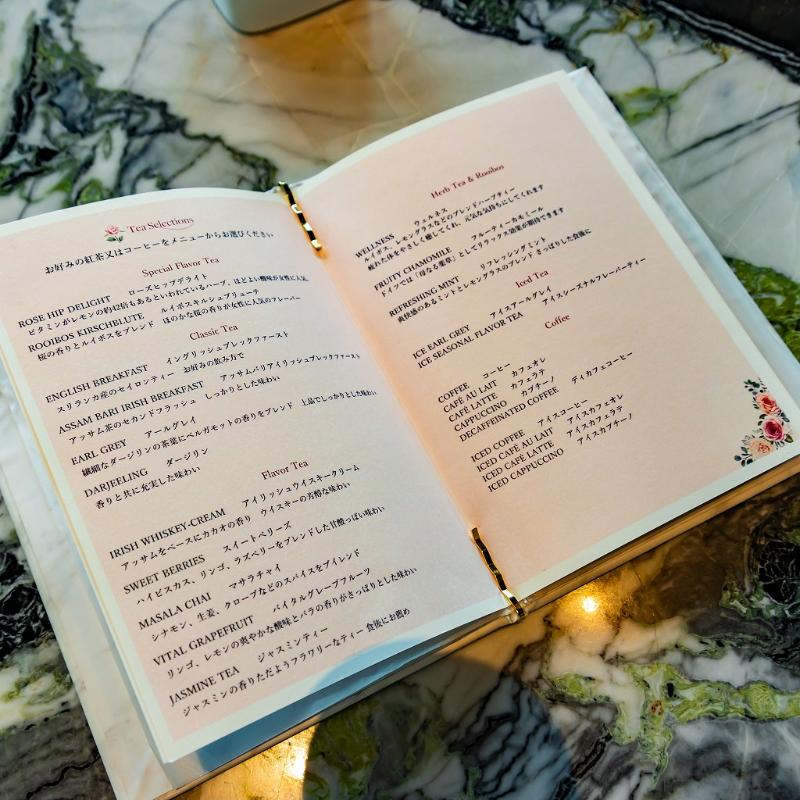 Tea Selections
お好みの紅茶又はコーヒーをメニューからお選びください
Special Flavor Tea
ROSE HIP DELIGHT ローズヒップデライト
ビタミンがレモンの約42倍もあるといわれているハーブ、ほどよい酸味が女性に人気
ROOIBOS KIRSCHBLUTE ルイボスキルシュブリューテ
桜の香りとルイボスをブレンド ほのかな桜の香りが女性に人気のフレーバー
Classic Tea
ENGLISH BREAKFAST イングリッシュブレックファースト
スリランカ産のセイロンティー お好みの飲み方で
ASSAM BARI IRISH BREAKFAST アッサムバリアイリッシュブレックファースト
アッサム茶のセカンドフラッシュ しっかりとした味わい
EARL GREY アールグレイ
繊細なダージリンの茶葉にベルガモットの香りをブレンド 上品でしっかりとした味わい
DARJEELING ダージリン
香りと共に充実した味わい
Flavor Tea
IRISH WHISKEY-CREAM アイリッシュウイスキークリーム
アッサムをベースにカカオの香り ウイスキーの芳醇な味わい
SWEET BERRIES スイートベリーズ
ハイビスカス、リンゴ、ラズベリーをブレンドした甘酸っぱい味わい
MASALA CHAI マサラチャイ
シナモン、生姜、クローブなどのスパイスをブレンド
VITAL GRAPEFRUIT バイタルグレープフルーツ
リンゴ、レモンの爽やかな酸味とバラの香りがさっぱりとした味わい
JASMINE TEA ジャスミンティー
ジャスミンの香りただようフラワリーなティー 食後にお薦め
Herb Tea & Rooibos
WELLNESS ウェルネス
ルイボス、レモングラスなどのブレンドハーブティー
疲れた体をやさしく癒してくれ、元気な気持ちにしてくれます
FRUITY CHAMOMILE フルーティーカモミール
ドイツでは「母なる薬草」としてリラックス効果が期待できます
REFRESHING MINT リフレッシングミント
爽快感のあるミントとレモングラスのブレンド さっぱりした食後に
Iced Tea
ICE EARL GREY アイスアールグレイ
ICE SEASONAL FLAVOR TEA アイスシーズナルフレーバーティー
Coffee
COFFEE コーヒー
CAFÉ AU LAIT カフェオレ
CAFÉ LATTE カフェラテ
CAPPUCCINO カプチーノ
DECAFFEINATED COFFEE ディカフェコーヒー
ICED COFFEE アイスコーヒー
ICED CAFÉ AU LAIT アイスカフェオレ
ICED CAFÉ LATTE アイスカフェラテ
ICED CAPPUCCINO アイスカプチーノ